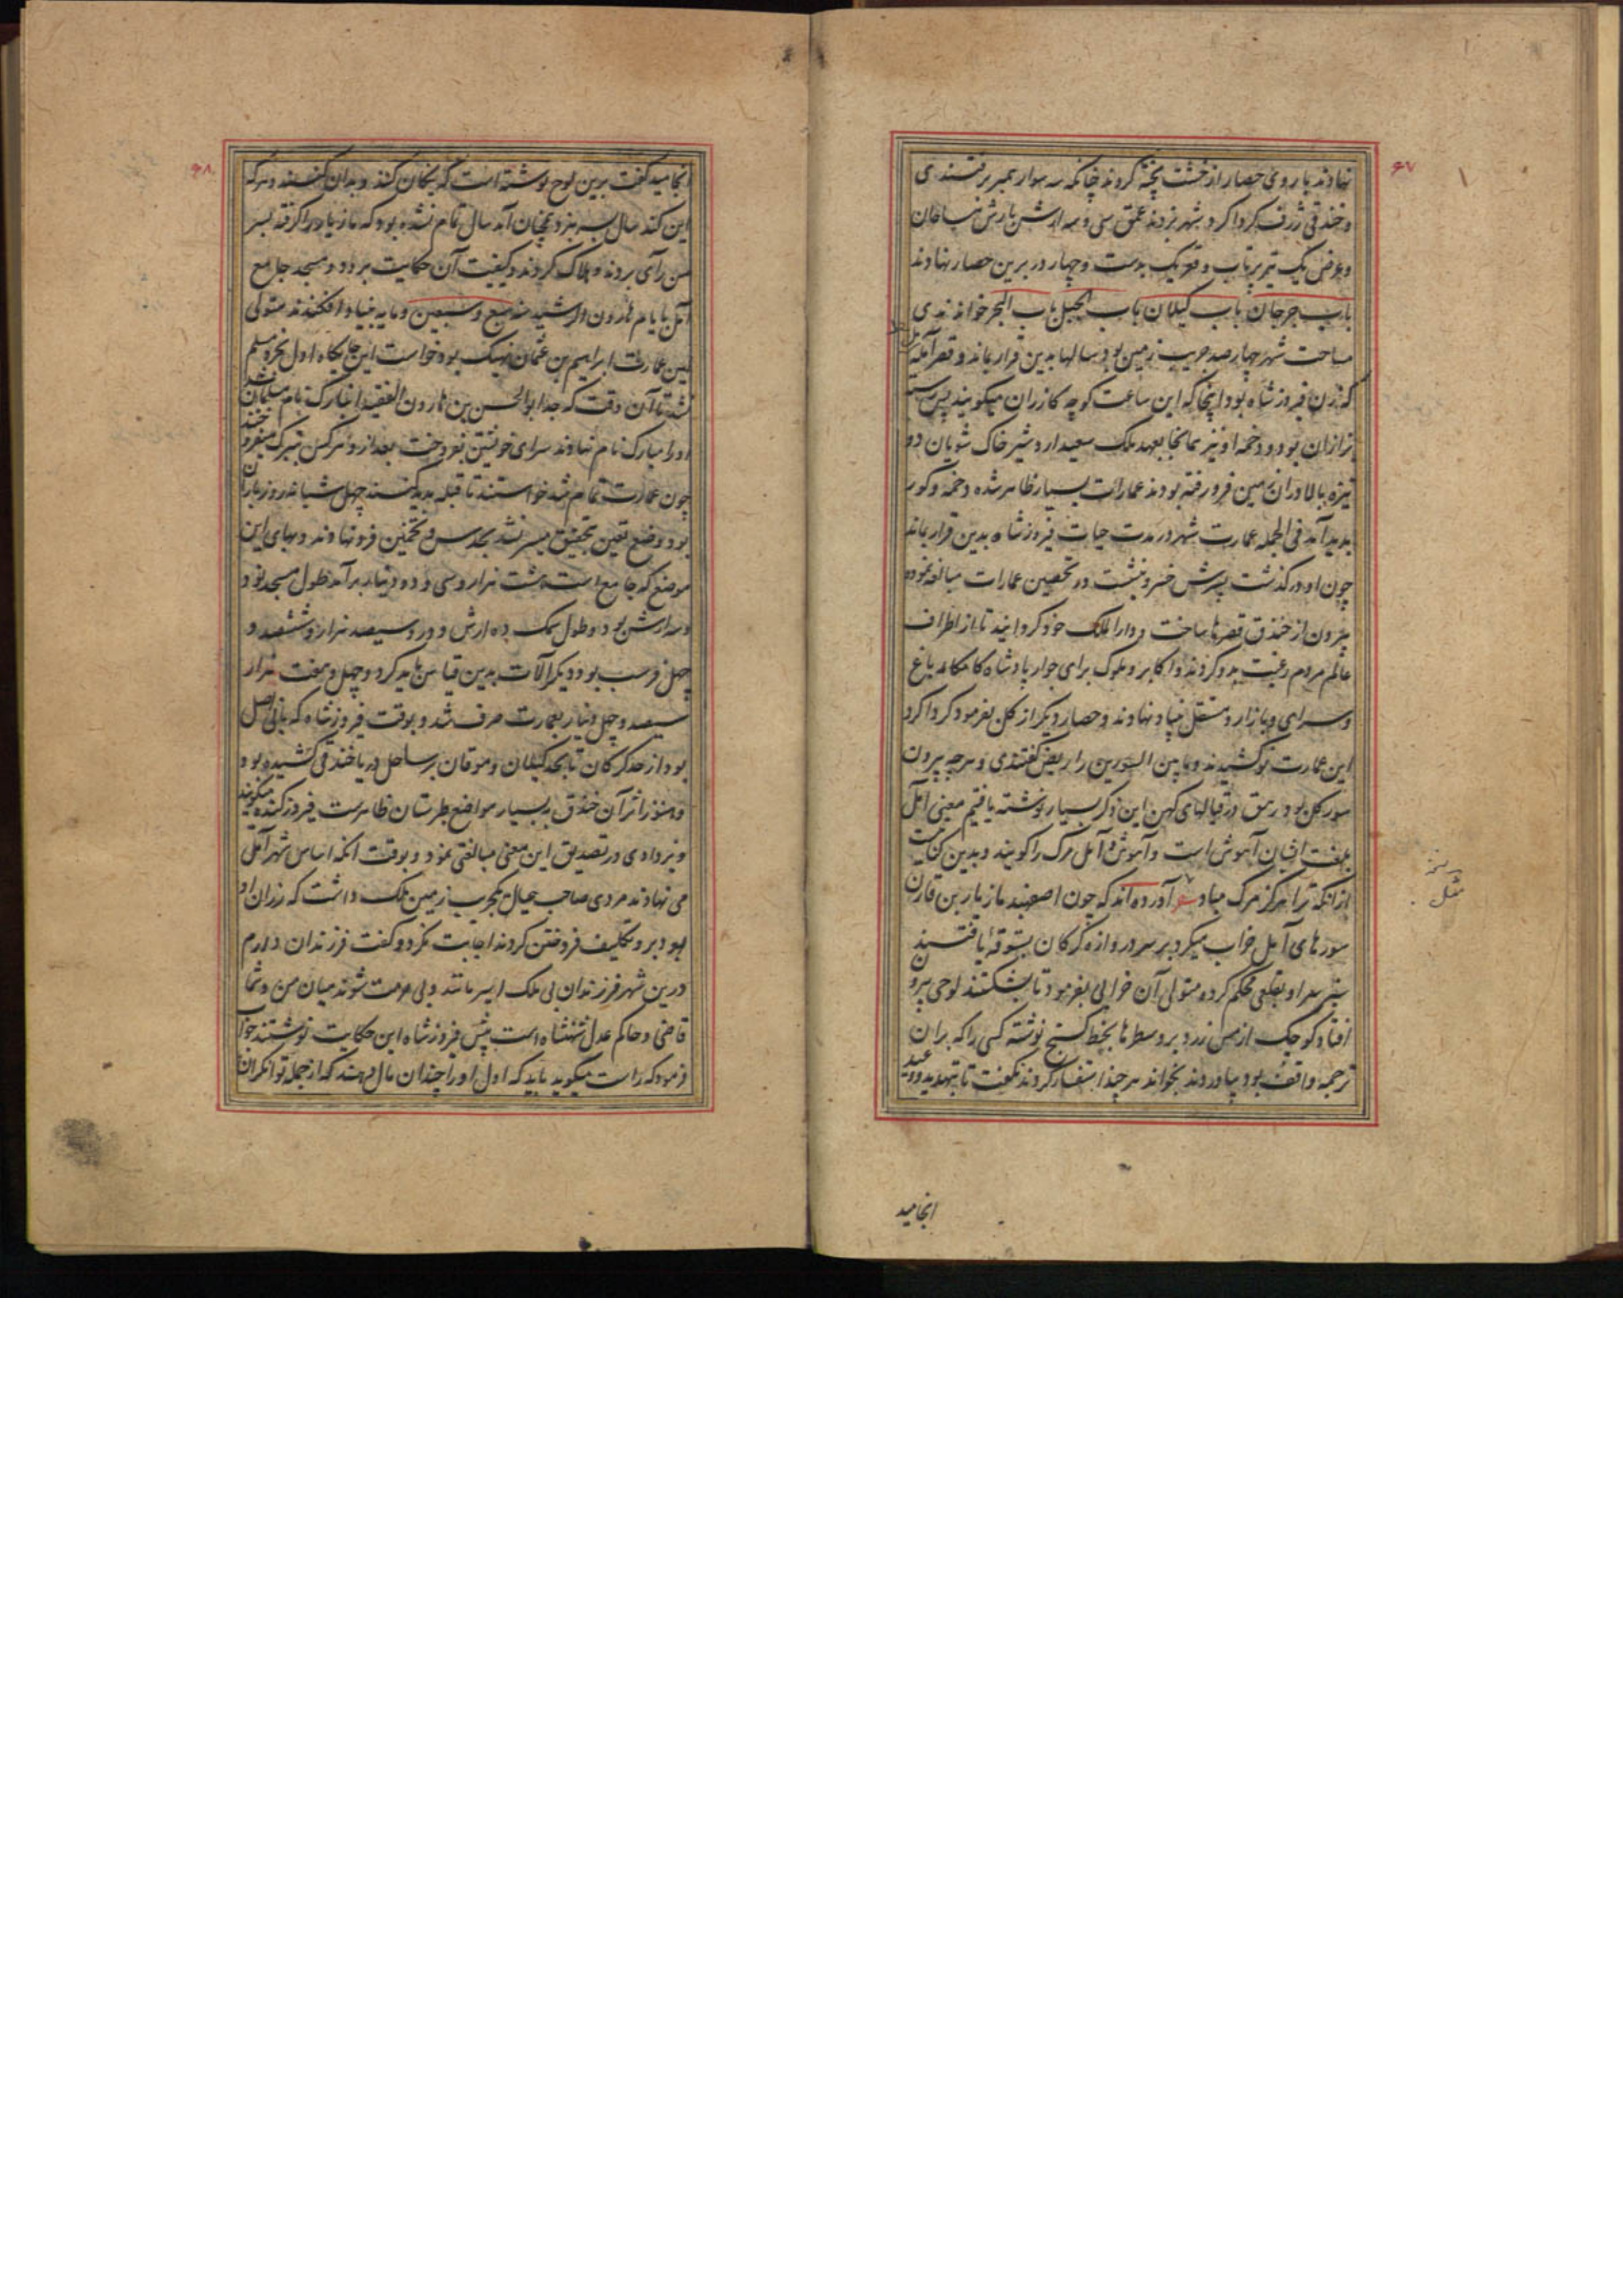 ۶۷
نهادند باروی حصار از خشت پخته کردند چنانکه سه سوار بهم بر رفتندی
و خندقی ژرف گرداگرد شهر بزدند عمق سی و سه ارش بارش نساخان
و عرض یک تیر پرتاب و قعر یک بدست و چهار در برین حصار نهادند
باب جرجان باب گیلان باب الجبل باب البحر خواندندی
مساحت شهر چهار صد جریب زمین بود سالها بدین قرار بماند و قصر آمله
که زن فیروز شاه بود اینجا که این ساعت کوچه کازران میگویند پس
بزازان بود و دخمه او نیز همانجا بعهد ملک سعید اردشیر خاک شویان دو
نیزه بالا در آن زمین فرو رفته بودند عمارات بسیار ظاهر شده دخمه و گور
پدید آمد فی الجمله عمارت شهر در مدت حیات فیروز شاه بدین قرار بماند
چون او درگذشت پسرش خسرو بنشست در تحصین عمارات مبالغه نموده
بیرون از خندق قصرها ساخت و دار الملک خود گردانید تا از اطراف
عالم مردم رغبت بدو کردند و اکابر و ملوک برای جوار پادشاه کامکار باغ
و سرای و بازار و مستقل بنیاد نهادند و حصار دیگر از گل بفرمود گرداگرد
این عمارت نو کشیدند و ما بین السورین را ربض گفتندی و هرچه بیرون
سور گل بود رستق در قبالهای کهن این ذکر بسیار نوشته یافتیم معنی آمل
بلغت ایشان آهوش است و آهوش و آمل مرگ را گویند و بدین کنایت
از آنکه ترا هرگز مرگ مباد آورده اند که چون اصفهبد مازیار بن قارن
سورهای آمل خراب میکرد بر سر دروازه گرگان بستوقهٔ یافتند
سبز سر او بقلعی محکم کرده متولی آن خرابی بفرمود تا بشکستند لوحی بیرون
افتاد کوچک از مس زرد برو سطرها بخط کستج نوشته کسی را که بر آن
ترجمه واقف بود بیاوردند بخواند هر چند استفسار کردند نگفت تا بتهدید و وعید
انجامید
۶۸
انجامید گفت برین لوح نوشته است که نیکان کنند و بدان کنند و هر که
این کند سال بسر نبرد همچنان آمد سال تمام نشده بود که مازیار را گرفته بسر
من رأی بردند و هلاک کردند و کیفیت آن حکایت برود و مسجد جامع
آمل بایام هارون الرشید سنه سبع و سبعین و مایه بنیاد افکندند متولی
این عمارت ابراهیم بن عثمان نهیک بود خواست این جایگاه اول بخرد مسلم
نشد تا آن وقت که جد ابو الحسن بن هارون الفقیه انبارک نام مسلمان شد
او را مبارک نام نهادند سرای خویشتن بفروخت بعد ازو هر کس تبرک میفروختند
چون عمارت تمام شد خواستند تا قبله پدید کنند چهل شبانه روز باران
بود وضع تعین تحقیق میسر نشد بحدس و تخمین فرو نهادند و بهای این
موضع که جامع است هشت هزار و سی و دو دینار بر آمد طول مسجد نود
و سه ارش بود و طول سمک ده ارش و درو سیصد هزار و ششصد و
چهل فرسب بود و دیگر آلات بدین قیاس باید کرد و چهل و هفت هزار
سیصد و چهل دینار بعمارت صرف شد و بوقت فیروز شاه که بانی اصل
بود از حد گرگان تا بحد گیلان و موقان بر ساحل دریا خندقی کشیده بود
و هنوز اثر آن خندق به بسیار مواضع طبرستان ظاهرست فیروز کنده میگویند
و یزدادی در تصدیق این معنی مبالغتی نمود و بوقت آنکه اساس شهر آمل
می نهادند مردی صاحب عیال یک جریب زمین ملک داشت که رزان او
بود برو تکلیف فروختن کردند اجابت نکرد و گفت فرزندان دارم
درین شهر فرزندان بی ملک اسیر مانند و بی حرمت شوند میان من و شما
قاضی و حاکم عدل شهنشاه است پیش فیروز شاه این حکایت نوشتند جواب
فرمود که راست میگوید باید که اول او را چندان مال دهند که از جمله توانگران